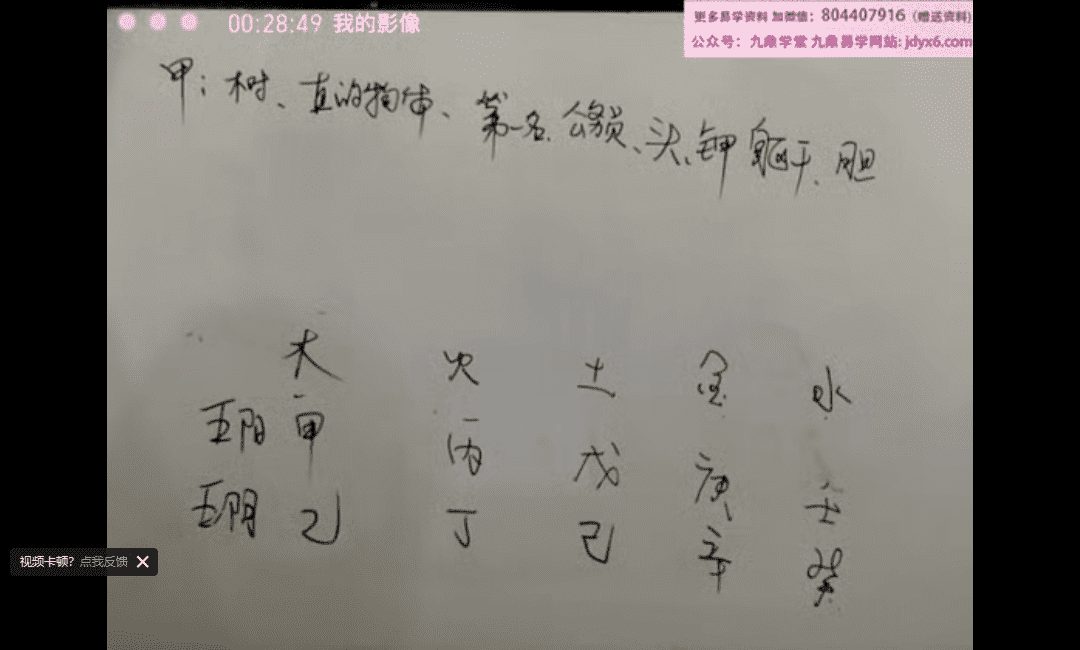 00:28:49 我的影像
更多易学资料 加微信：804407916（赠送资料）
公众号：九鼎学堂 九鼎易学网站: jdyx6.com
甲：树、直的物体、第一名、公务员、头、钾 躯干、胆
木 火 土 金 水
五阳 甲 丙 戊 庚 壬
五阴 乙 丁 己 辛 癸
视频卡顿? 点我反馈